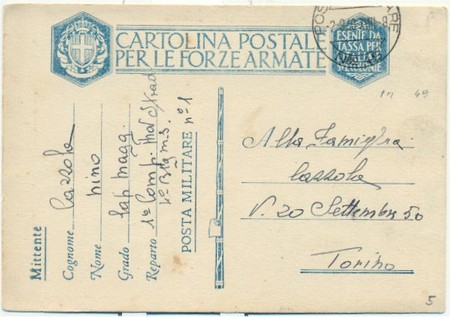 CARTOLINA POSTALE
PER LE FORZE ARMATE
ESENTE DA
TASSA PER
Mittente
Cognome Cazzola
Nome Nino
Grado
Reparto 1ª Comp.
POSTA MILITARE n° 1
Alla Famiglia
Cazzola
V. 20 Settembre 50
Torino
5